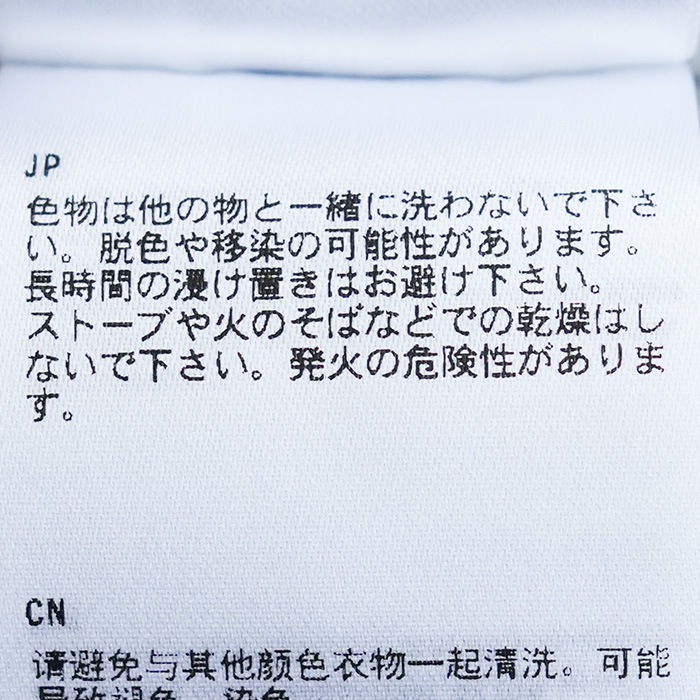 JP
色物は他の物と一緒に洗わないで下さ
い。脱色や移染の可能性があります。
長時間の浸け置きはお避け下さい。
ストーブや火のそばなどでの乾燥はし
ないで下さい。発火の危険性がありま
す。
CN
请避免与其他颜色衣物一起清洗。可能
导致褪色、染色